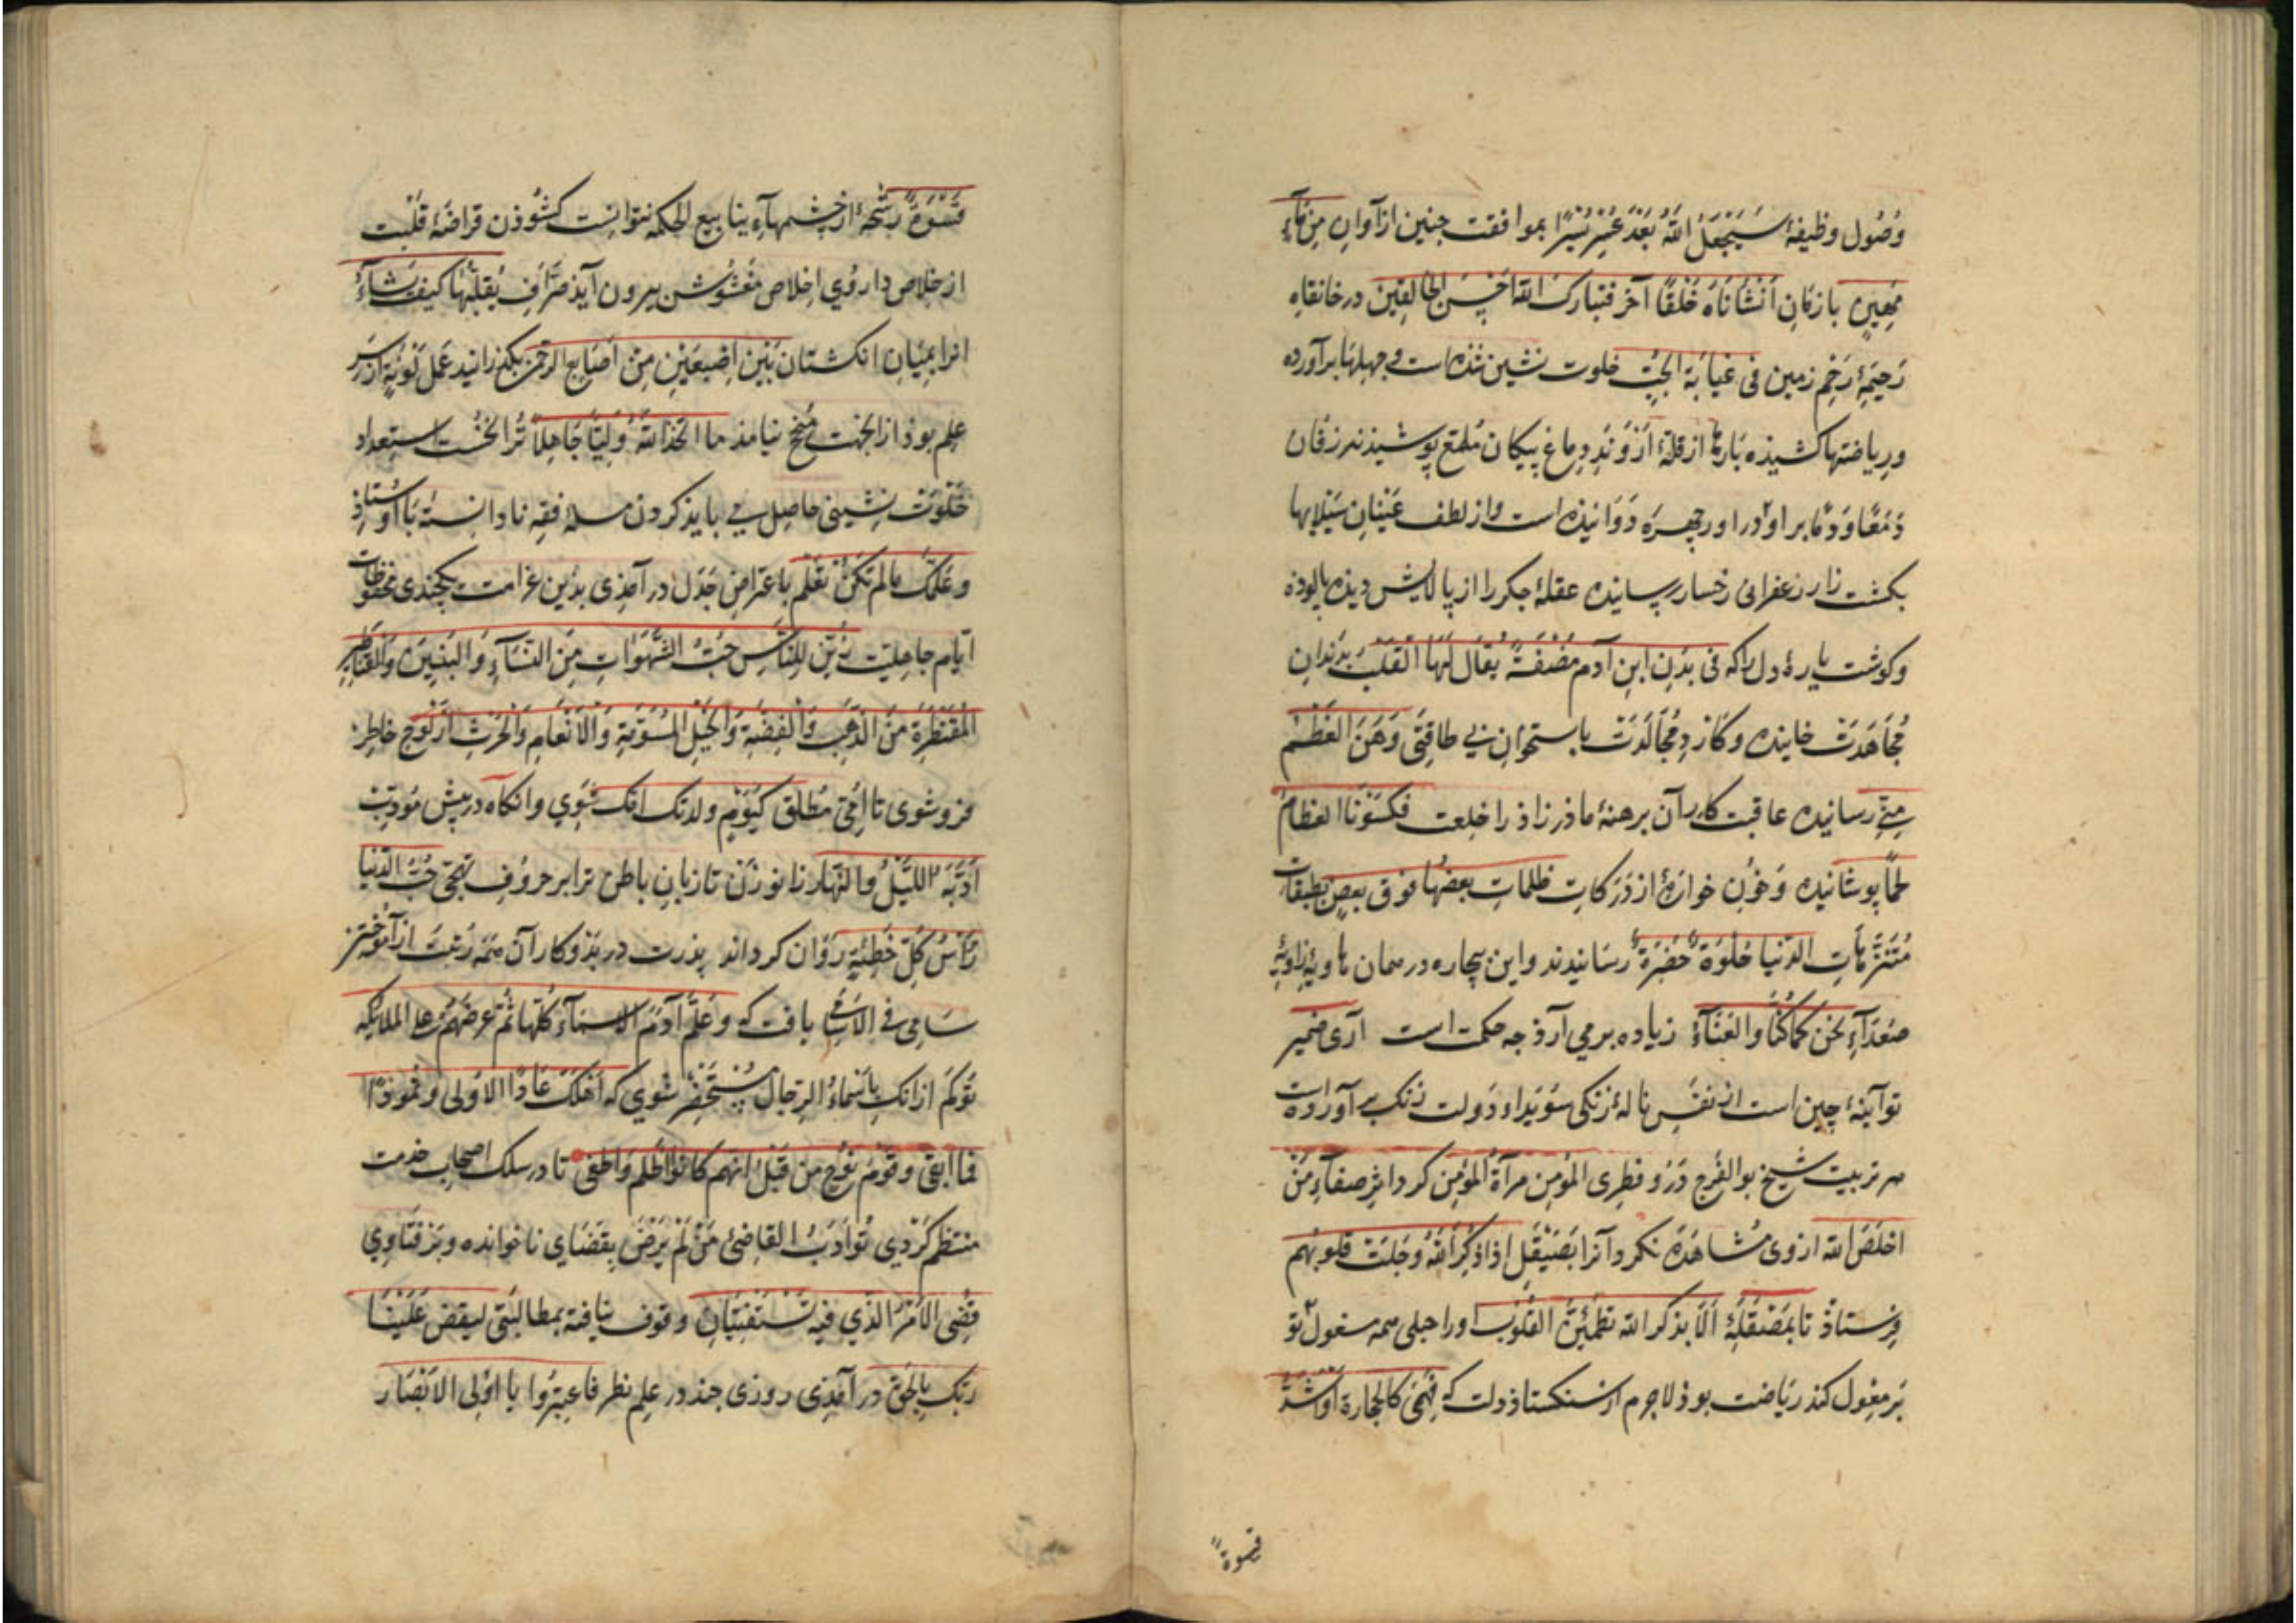 وصول وظیفهٔ سَیَجْعَلُ اللهُ بَعْدَ عُسْرٍ یُسْرًا بموافقت جنین از آوان مِن مآءٍ
مَعین بازمان اَنشَأناهُ خَلْقًا آخَر فتبارک الله احسن الخالقین در خانقاه
رحیمهٔ رَحِم زمین فی غیابة الجُبّ خلوت نشین شذه است و جهلها برآورده
وریاضتها کشیذه بارها از قلهٔ اَرْوَند دماغ پیکان ملمع پوشیذنه رزقان
دمعا و دما بر او در او رجهره دوانیذه است و از لطف عینان سیلابها
بکشت زار زعفرانی رخسار رسانیده عقلهٔ جکر را از پالایش دیذه پالوده
وکوشت پارهٔ دل را که فی بَدَنِ ابنِ آدم مُضْغَةً یُقال لَهَا القَلْبُ بدندان
مُجاهَدَت خاییذه و کازد مُجالَدَت باستخوان بی طاقتی وَهَنَ العَظْمُ
مِنّی رسانیده عاقبت کار آن برهنهٔ ماذر زاذ را خلعت فکسونا العظام
لحمًا پوشانیده و خون خوارهٔ از دَرَکات ظلمات بعضها فوق بعض بطبقات
مُتنزّهات الدُّنیا حُلْوَةٌ خَضِرَةٌ رسانیدند و این بیجاره در همان هاویهٔ زاویهٔ
صُعَدَآءِ نحن کماکنا والعَنَآءُ زیاده برمی آرد جه حکمت است آری ضمیر
تو آینهٔ چین است از نفس ناله زنکی سُوَیداو دَولت زنک برآورده است
هر تربیت شیخ بوالفرج دَرو فطری المؤمن مرآةُ المؤمِن کردانذ صفآءِ مَنْ
اخلَصَ لله ازوی مشاهَدَه نکرد آنرا بصَیْقَل اذا ذُکِرَ اللهُ وَجِلَت قلوبهم
فرستاذ تا بمِصْقَلَهٔ اَلا بذکر الله تطمئِنُّ القلوب اورا جلی همه مشغول تو
بَر معمول کند ریاضت بوذ لاجرم از سنکستان دلت که فَهِیَ کالحجارة اَوْ اَشَدُّ
قسوةً
قَسْوَةً رَشْحهٔ از چشمهاءِ ینابیع الحکمه نتوانست کشوذن قراضهٔ قلبت
از خلاص دار وی اخلاص مغشوش بیرون آیذ صَرّافِ یُقلِّبُها کیف یشاءُ
انرا بمیان انکشتان بَیْنَ اِصْبعَیْنِ مِن اَصابِع الرحمن بکذرانید عمل توبه از سَرِ
علم بوذ ازانجهت مُنجح نیامذ ما اتخذ اللهُ وَلِیًّا جاهِلًا تُرا نخست استعداد
خَلْوَت نشینی حاصل می بایذ کردن مسلهٔ فقه نادانسته با اوستاذ
وعَلَّمَکَ مالم تکُن تعْلم باعتراض جَدَل درآمذی بدین غرامت یکچندی محفوظات
ایام جاهلیّت زُیِّنَ لِلنّاسِ حُبُّ الشَّهَواتِ مِنَ النِّسَآءِ وَالبَنینَ وَالقَناطیرِ
المُقَنْطَرَةِ مِنَ الذَّهَبِ وَالْفِضَّةِ وَالْخَیْلِ المُسَوَّمَةِ وَالْاَنْعامِ وَالْحَرْثِ از لوح خاطر
فروشوی تا اُمّی مُطلق کَیَوْمِ ولدتک امّک شوی وانکاه در پیش مُودّب
اَدَّبَهُ اللَّیْلُ والنَّهار زانو زن تا زبان باطن ترا بر حروف تهجّی حُبُّ الدّنیا
رَأْسُ کُلِّ خَطِیئَةٍ رَوان کرداند پذرت در بَذو کار آن همه رُتبت از آموختن
سَامی فی الاسامی یافت که وعَلَّمَ آدَمَ الاسمآءَ کُلَّها ثُمَّ عَرَضَهُم علی الملائکه
تو کم ازانک باَسْماءِ الرِّجال مُستَحْضِر شوی که اَهْلَکَ عادًا الاُولی وثمودًا
فما ابقی وقومَ نوحٍ من قبل انهم کانوا اظلم واطغی تا در سلک اصحاب خدمت
منتظم کَردی تو اَدَبُ القاضی مَنْ لَمْ یَرْضَ بِقَضای ناخوانده وبر فَتاوی
قُضِیَ الاَمْرُ الَّذی فیه تَسْتَفْتِیَانِ وقوف نایافته بمطالبتی لیقض عَلَیْنَا
رَبُّک بالحق در آمَذی روزی چند در علم نظر فاعتبرُوا یا اُولی الابْصَار